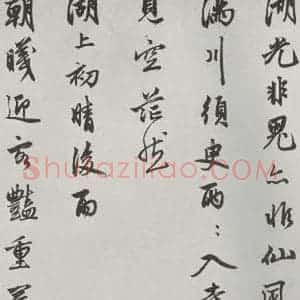 湖光非鬼亦非仙風
滿川須臾兩〻入
見空茫然
湖上初晴後雨
朝曦迎客豔重
Shufaziliao.COM